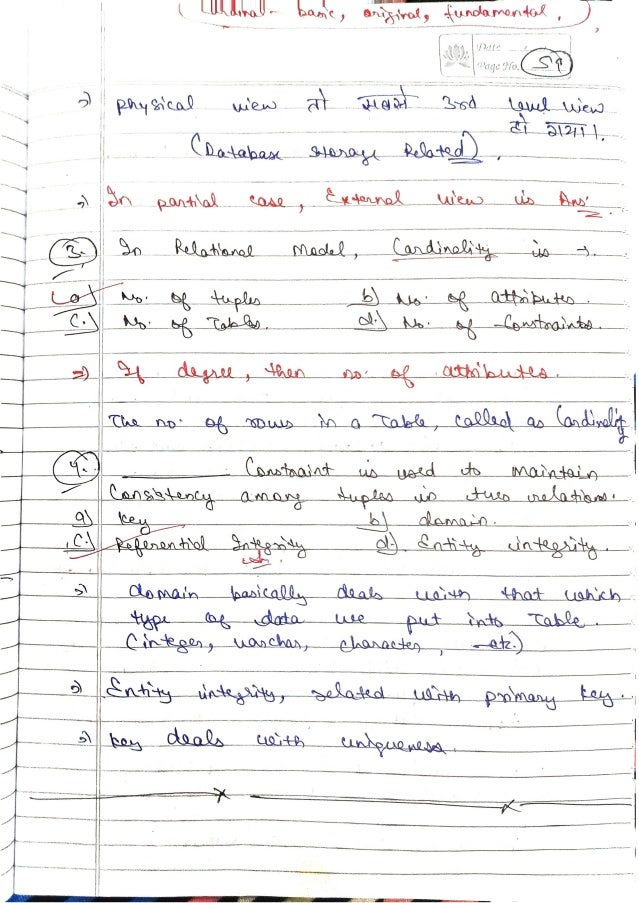 Cardinal - basic, original, fundamental.
Date
Page No. 59
→ physical view तो सबसे 3rd level view
हो गया।
(Database storage Related).
→ In partial case, External view is Ans
3. In Relational Model, Cardinality is →.
a) No. of tuples b) No. of attributes.
c.) No. of Tables. d.) No. of Constraints.
⇒ If degree, then no. of attributes.
The no. of rows in a Table, called as Cardinality
4. ________ Constraint is used to maintain
Consistency among tuples in two relations.
a) key b) domain.
c.) Referential Integrity d.) Entity integrity.
→ domain basically deals with that which
type of data we put into Table.
(integer, varchar, character, —etc.)
→ Entity integrity, related with primary key.
→ key deals with uniqueness.